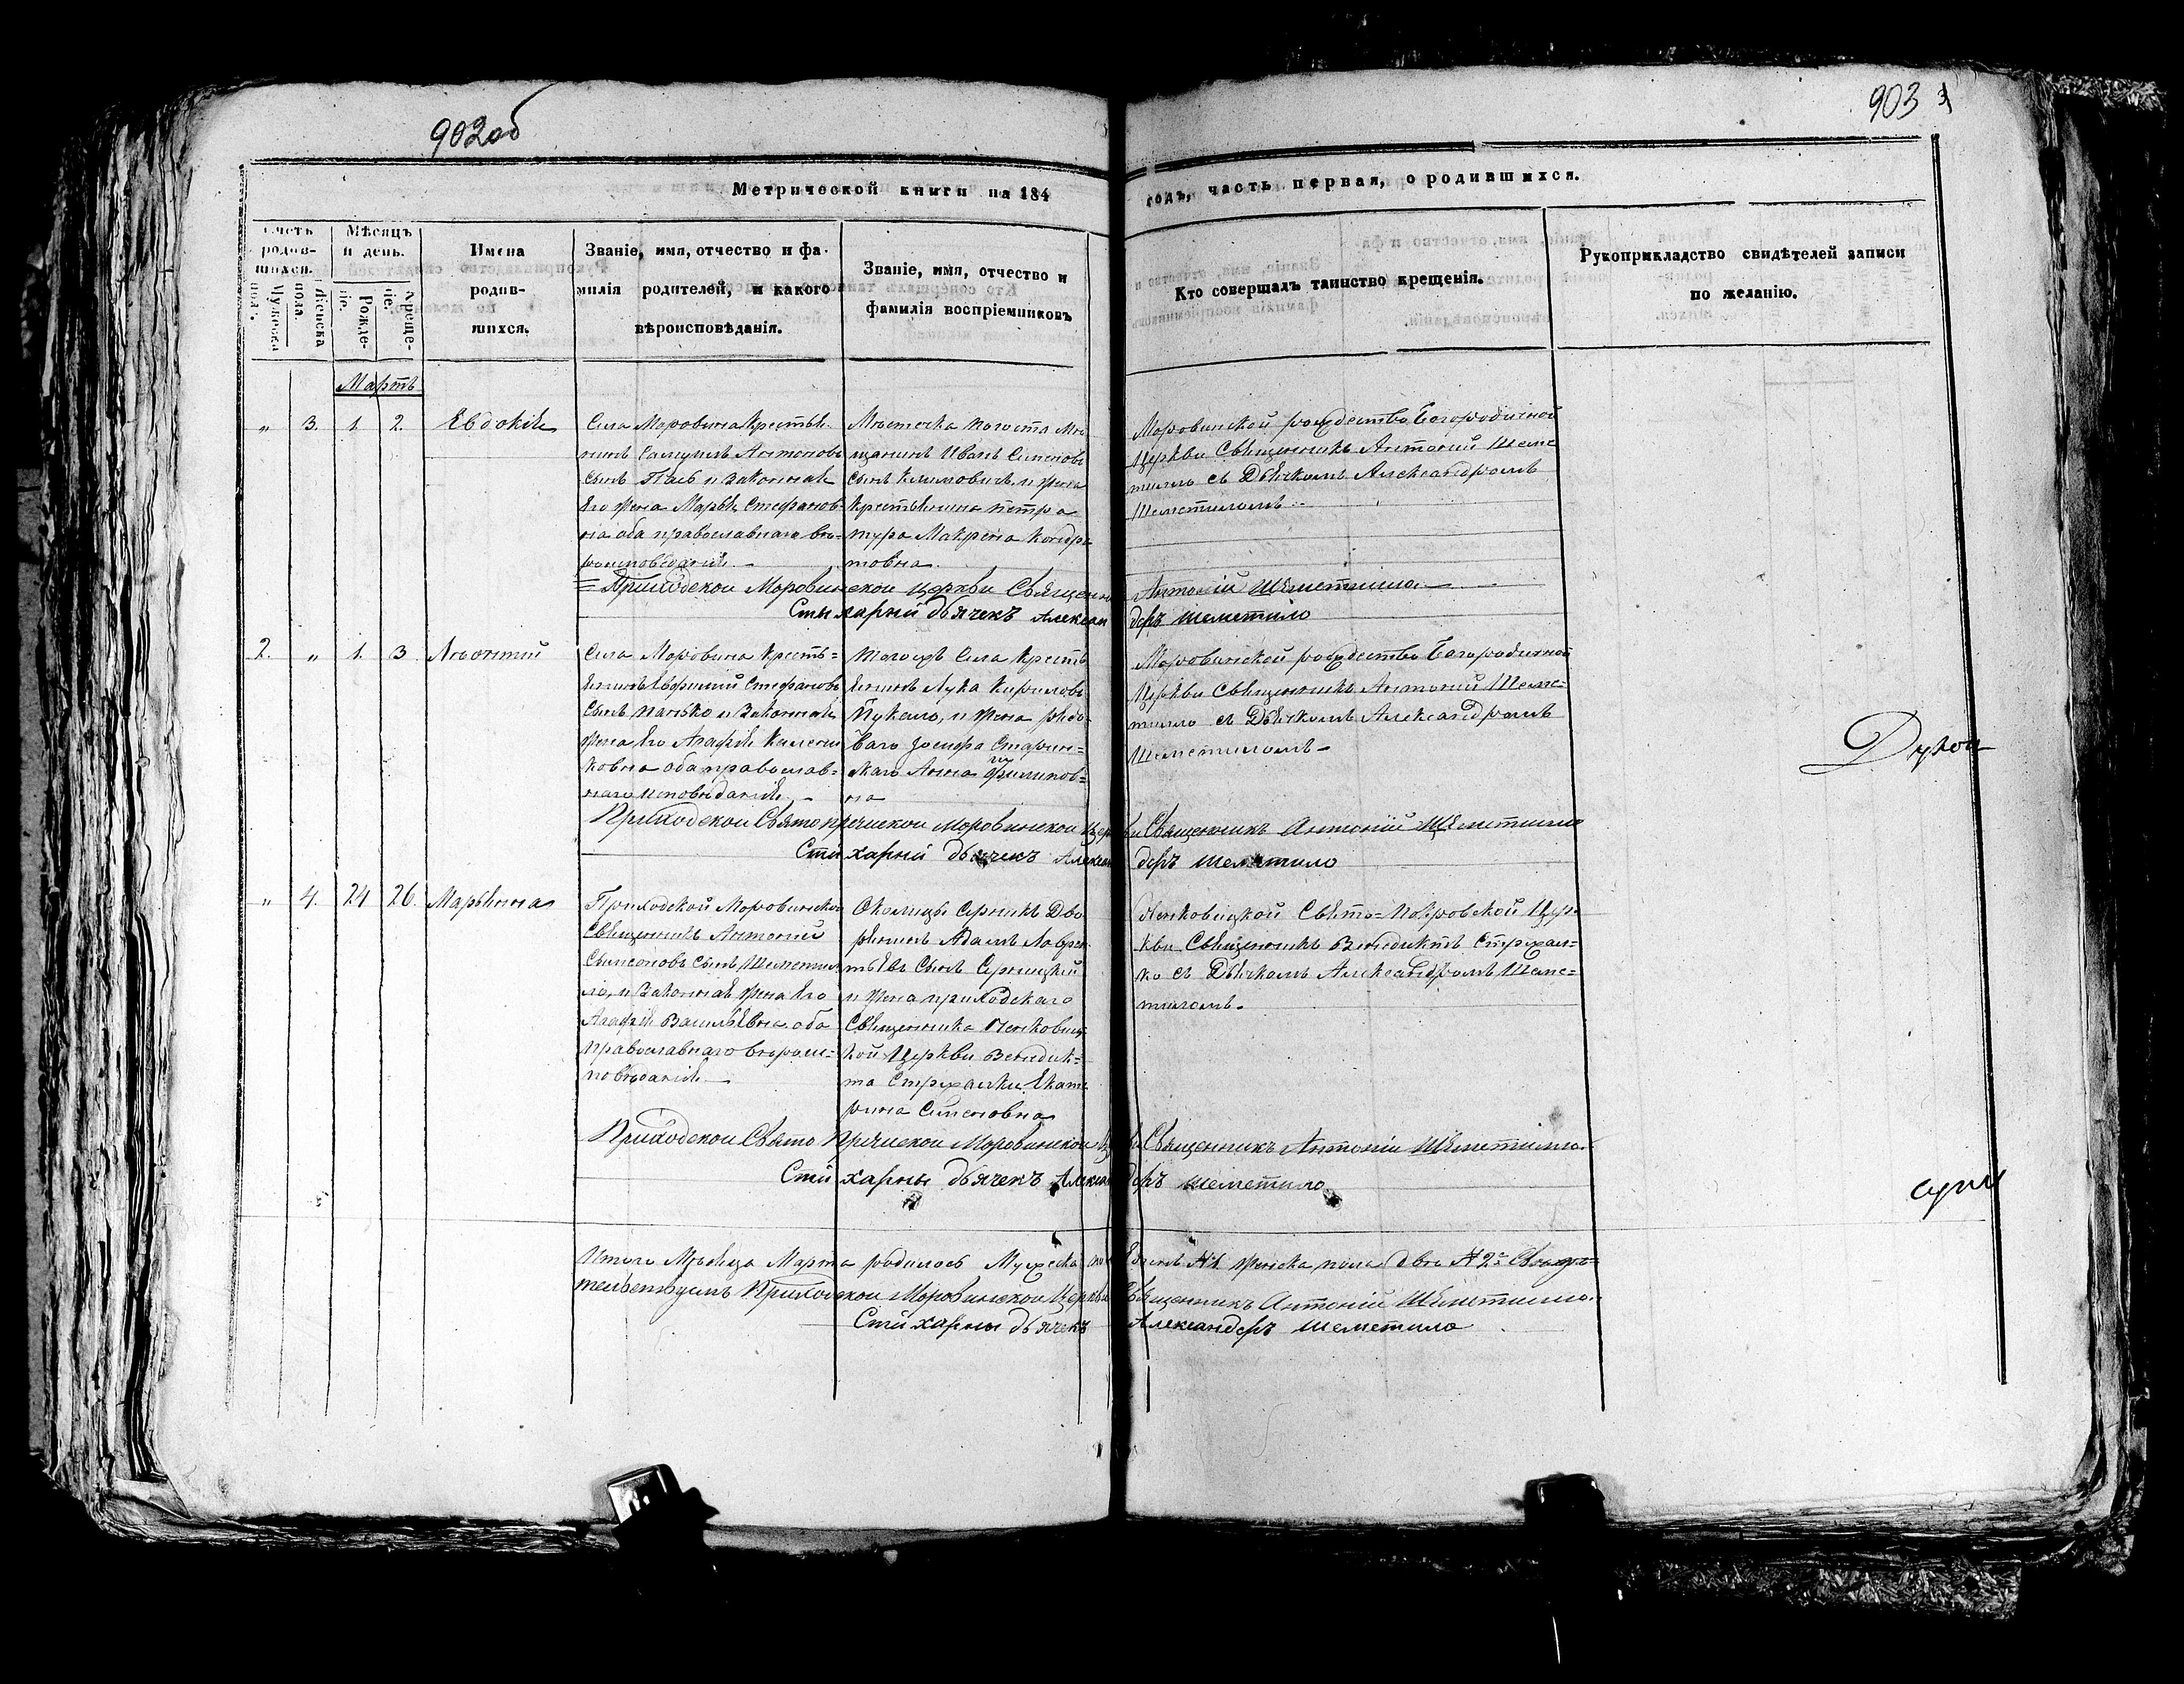 902об
903
Метрической книги на 184
годъ, часть первая, о родившихся.
Счетъ родив-
шихся.
Мужеска пола.
Женска пола.
Мѣсяцъ
и день.
Рожде-
ніе.
Креще-
ніе.
Имена
родив-
шихся.
Званіе, имя, отчество и фа-
милія родителей, и какого
вѣроисповѣданія.
Званіе, имя, отчество и
фамилія воспріемниковъ
Кто совершалъ таинство крещенія.
Рукоприкладство свидѣтелей записи
по желанію.
Мартъ
„ 3. 1. 2. Евдокія
Села Моровина Крестья-
нинъ Самуилъ Антоновъ
сынъ и законная
Его жена Марья Стефанов-
на оба православнаго вѣ-
роисповѣданія.
Мѣстечка Погоста Мѣ
щанинъ Иванъ Сименовъ
сынъ Климовичъ и жена
Крестьянина Петра
Макрина Кондра
товна.
Моровинской рождество Богородичной
Церкви Священникъ Антоній Шеме
тилло съ Дьячкомъ Александромъ
Шеметиломъ.
Приходской Моровинской церкви Священникъ Антоній Шеметилло.
Стихарный дьячекъ Александеръ Шеметило
2. „ 1. 3. Леонтий
Села Моровина Кресть=
янинъ Стефановъ
сынъ Панько и Законная
жена Его Агафія
ковна оба православ=
наго исповѣданія.
Тогожъ Села Кресть
янинъ Лука Кириловъ
Пукало, и жена рядо-
ваго Іосифа Старин=
скаго Анна Филипов=
на
Моровинской рождество Богородичной
Церкви Священникъ Антоній Шеме=
тилло съ Дьячкомъ Александромъ
Шеметиломъ
Духов
Приходской Свято Пречиской Моровинской Церкви Священникъ Антоній Шеметилло
Стихарный дьячекъ Александеръ Шеметило
„ 4. 24 26. Марьянна
Приходской Моровинской
Священникъ Антоній
Сымсоновъ сынъ Шеметил
ло, и Законная жена Его
Агафія Васильевна оба
православнаго вѣроис=
повѣданія
Околицы Серникъ Дво
рянинъ Адамъ Лаврен
тьевъ сынъ Серницкій
и жена приходскаго
Священника
кой Церкви Венедик=
та Екате
рина Сименовна
Свято=Покровской Цер-
кви Священникъ Венедиктъ
ко съ Дьячкомъ Александромъ Шеме=
тиломъ.
Приходской Свято Пречиской Моровинской Церкви Священникъ Антоній Шеметилло.
Стихарны дьячекъ Александеръ Шеметило
Итого Мѣсяца Марта родилось Мужеска пола Единъ №1 женска пола две №2 Свидѣ=
тельствуемъ Приходской Моровинской Церкви Священникъ Антоній Шеметилло.
Стихарны дьячекъ Александеръ Шеметило